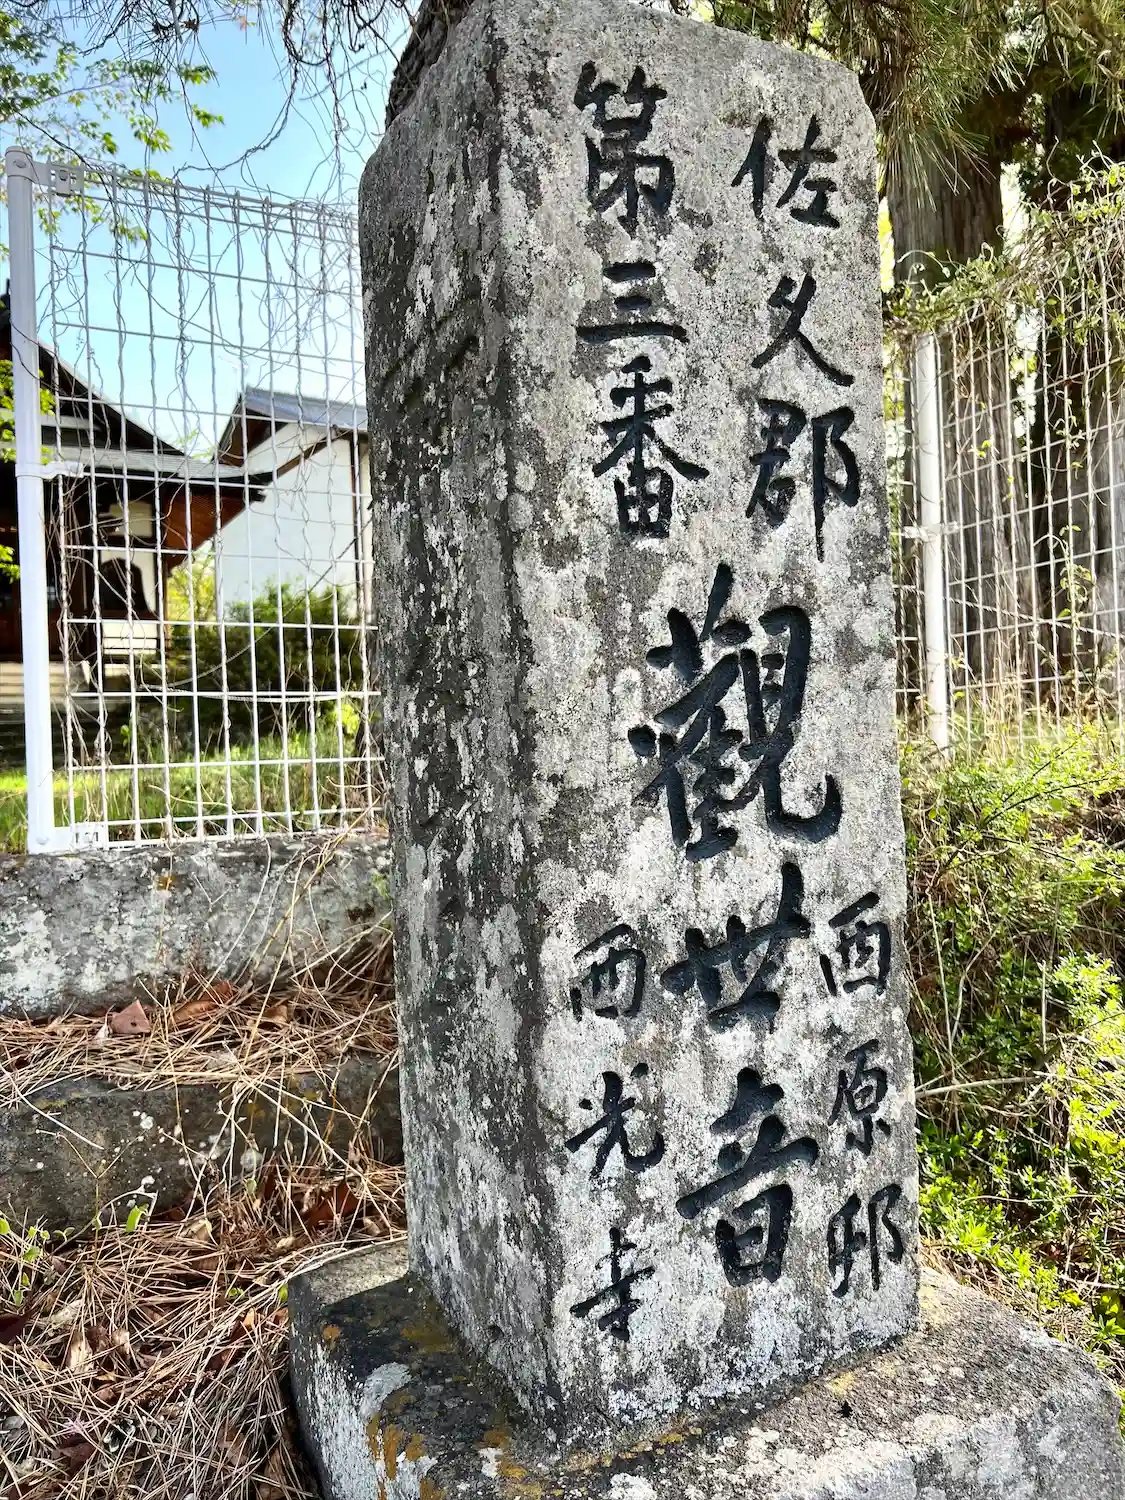 佐久郡
第三番
觀世音
西原邨
西光寺